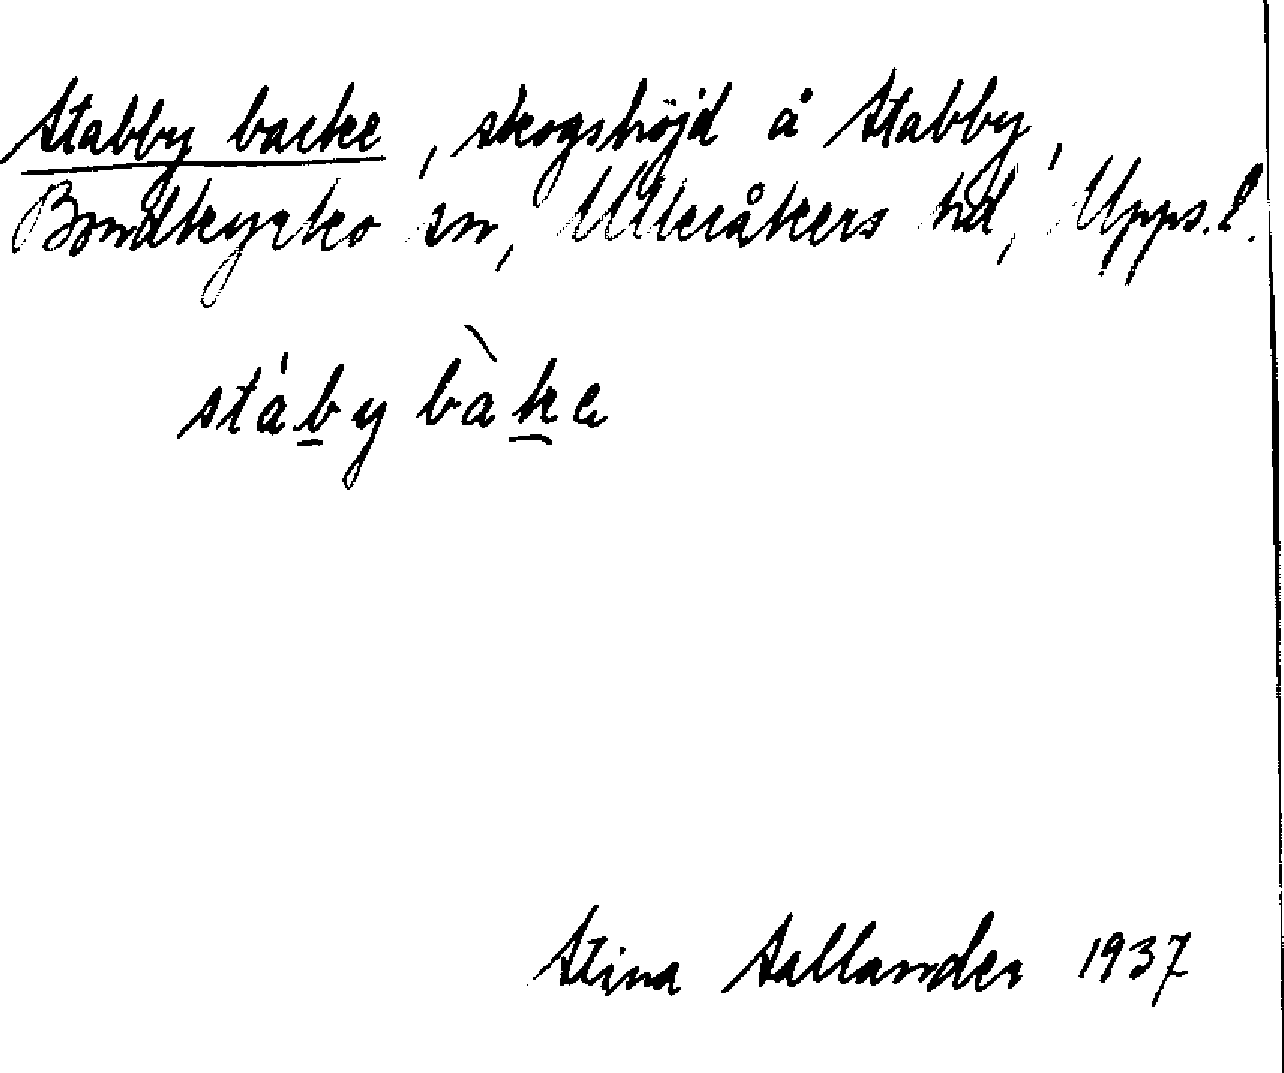 Stabby backe, skogshöjd å Stabby,
Bondkyrko sn, Ulleråkers hd, Upps. l.
stáby bàke
Stina Sallander 1937